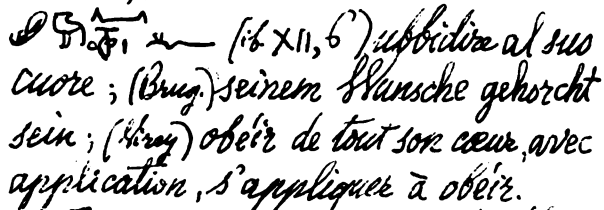 (ib XII, 6) ubbidire al suo
cuore ; (Brug.) seinem Wunsche gehorcht
sein ; (Virey) obéir de tout son cœur, avec
application, s'appliquer à obéir.